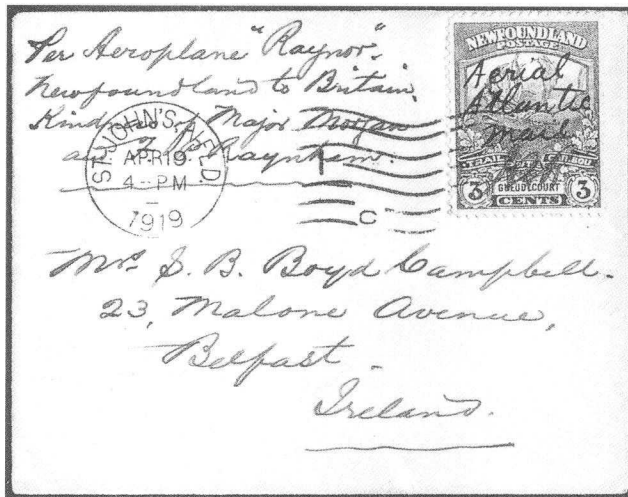 Per Aeroplane "Raynor".
Newfoundland to Britain.
Kindness of Major Morgan
and Mr Raynham.
ST. JOHN'S, NFLD.
APR 19
4 - PM
1919
C
NEWFOUNDLAND
POSTAGE
Aerial
Atlantic
Mail
TRAIL OF THE CARIBOU
GUEUDECOURT
3 CENTS 3
Mrs S. B. Boyd Campbell.
23, Malone Avenue,
Belfast.
Ireland.